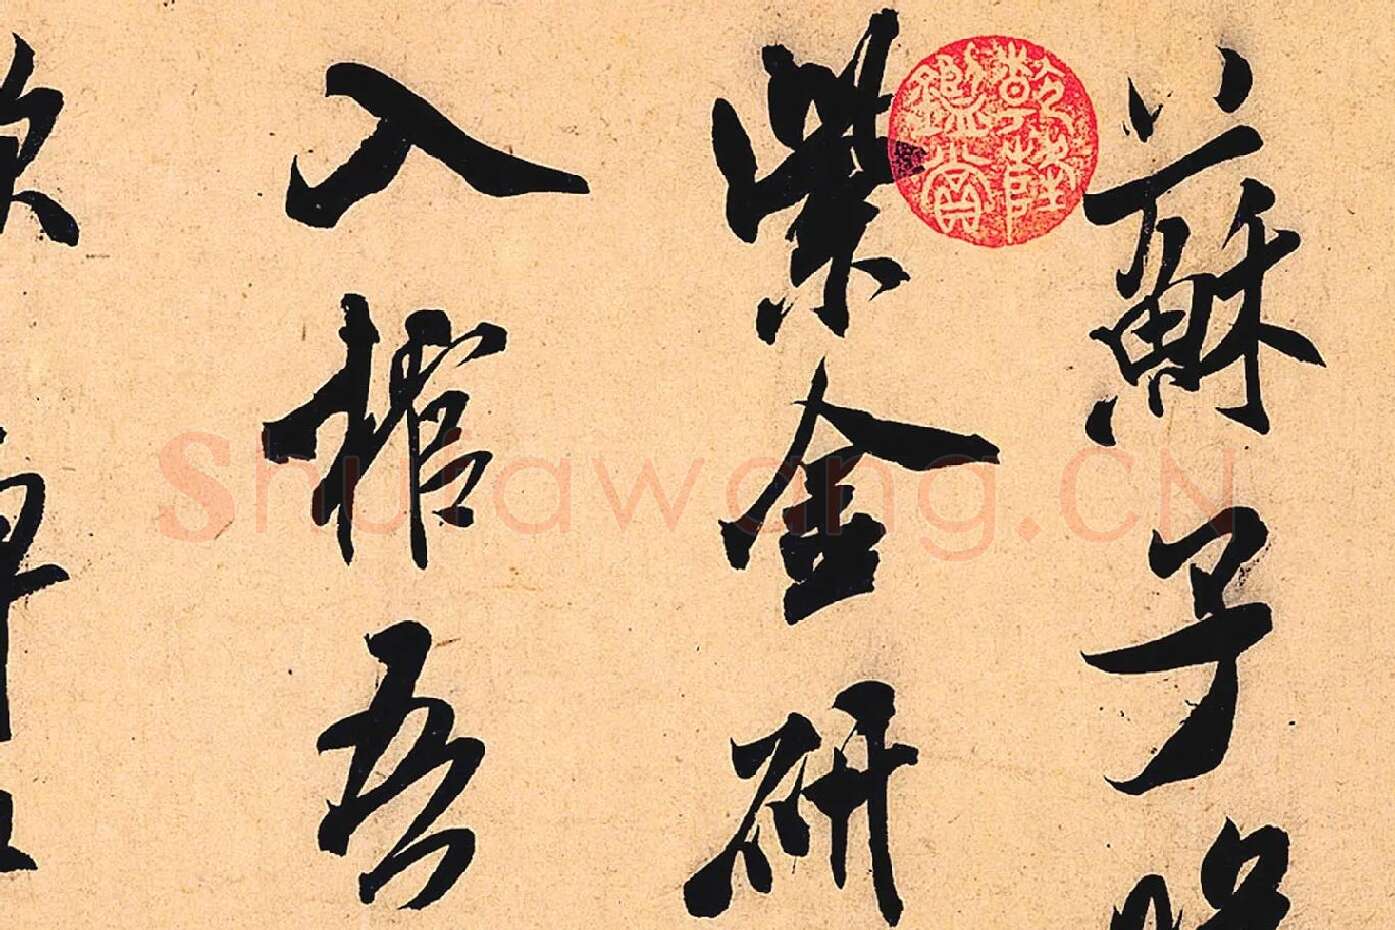 蘇子
紫金研
入棺吾
乾隆
鑑賞
Shufawang.CN